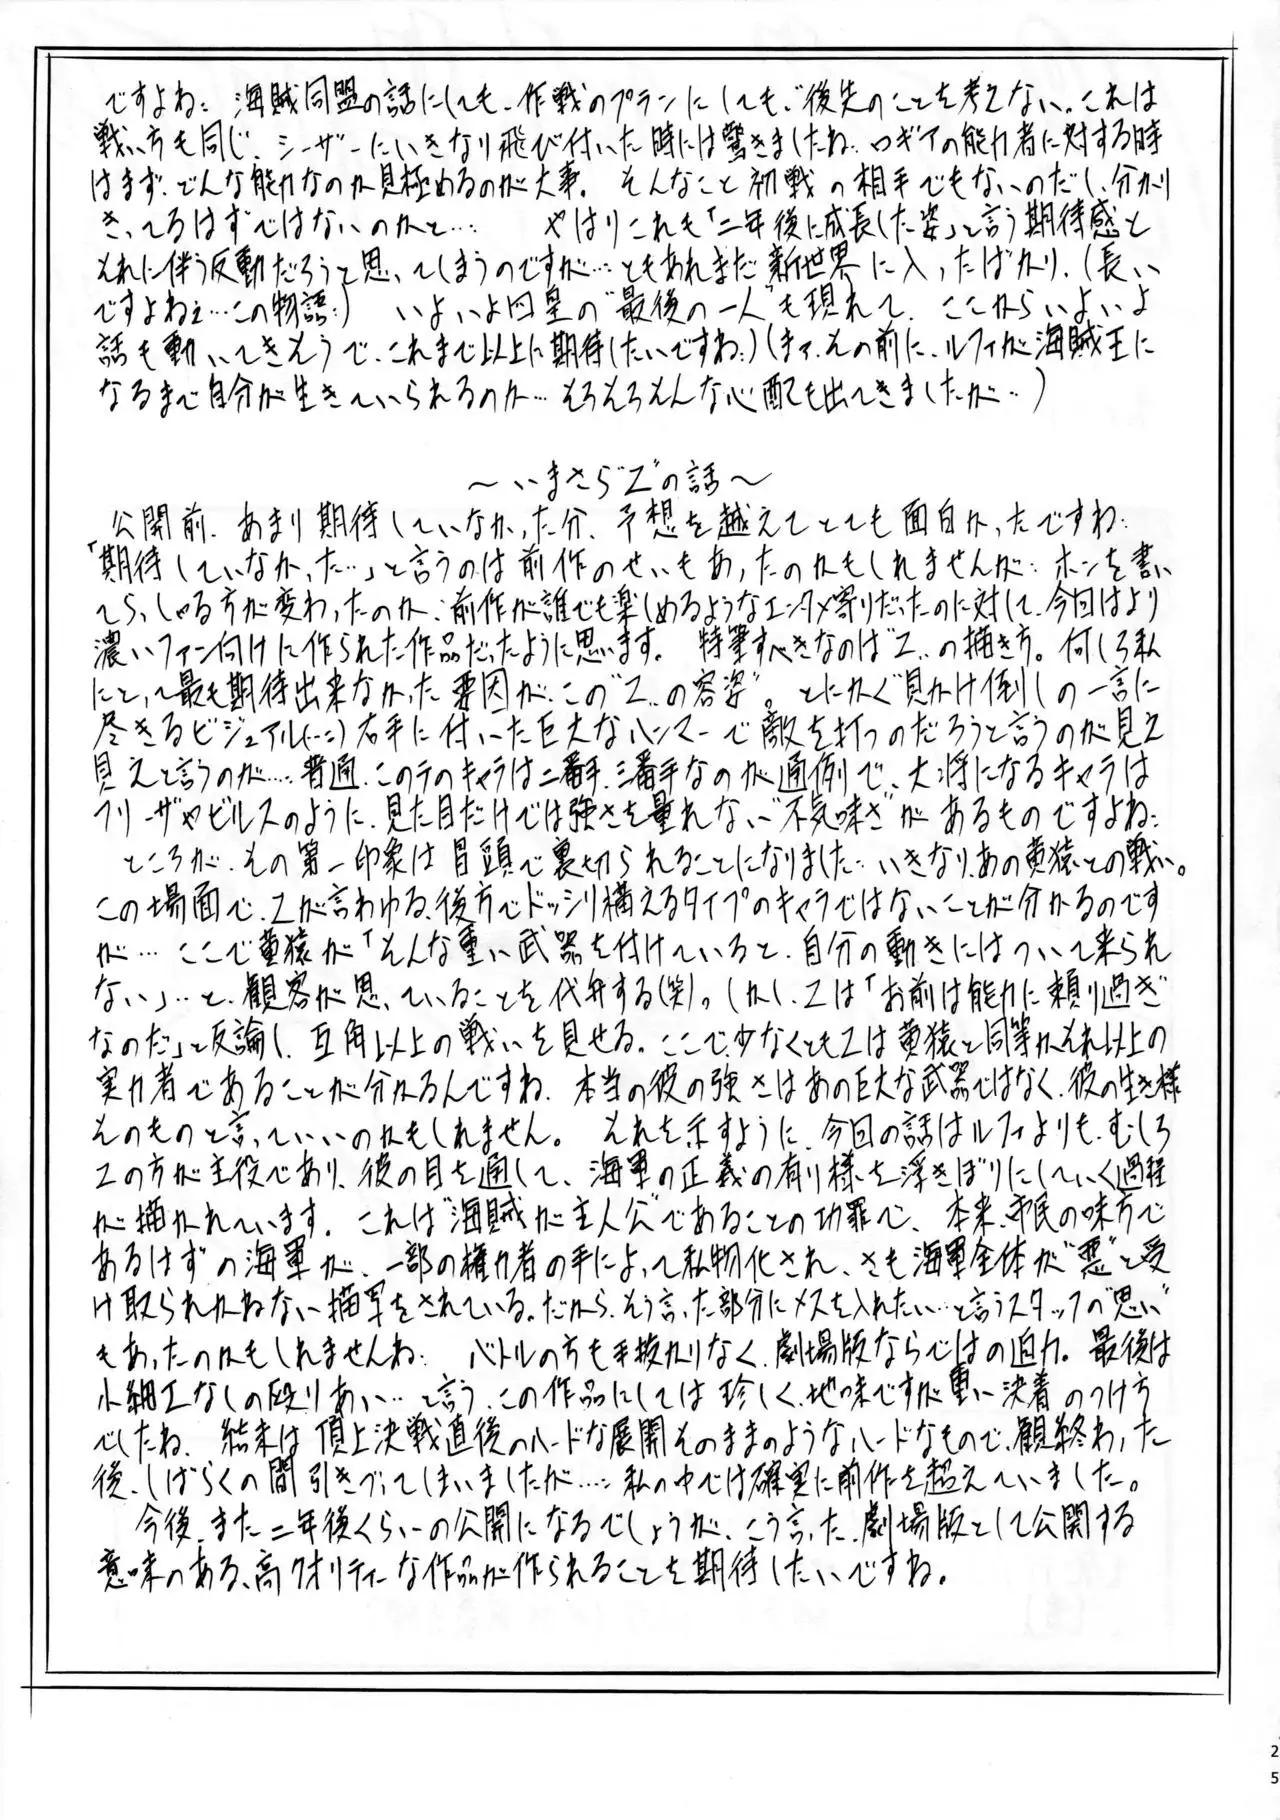 ですよね: 海賊同盟の話にしても、作戦のプランにしても、"後先のことを考えない。これは
戦い方も同じ、シーザーにいきなり飛び付いた時には驚きましたね‥ロギアの能力者に対する時
はまず、どんな能力なのか見極めるのが大事。そんなこと初戦の相手でもないのだし、分かり
きってるはずではないのかと… やはりこれも「二年後に成長した姿」と言う期待感と
それに伴う反動だろうと思ってしまうのですが…ともあれまだ新世界に入ったばかり、(長い
ですよねェ…この物語:) いよいよ四皇の"最後の一人"も現れて、ここからいよいよ
話も動いてきそうで、これまで以上に期待したいですね:)(まァ、その前に、ルフィが海賊王に
なるまで自分が生きていられるのか…そろそろそんな心配も出てきましたが‥)
～いまさら"Z"の話～
公開前、あまり期待していなかった分、予想を越えてとても面白かったですね:
「期待していなかった…」と言うのは前作のせいもあったのかもしれませんが‥ホンを書い
てらっしゃる方が変わったのか、前作が誰でも楽しめるようなエンタメ寄りだったのに対して、今回はより
濃いファン向けに作られた作品だったように思います。 特筆すべきなのは"Z"の描き方。何しろ私
にとって最も期待出来なかった要因が、この"Z"の容姿"。とにかく"見かけ倒しの一言に
尽きるビジュアル(…:)右手に付いた巨大なハンマーで敵を打つのだろうと言うのが見え
見えと言うのが…、普通、このテのキャラは二番手、三番手なのが通例で、大将になるキャラは
フリーザやビルスのように、見た目だけでは強さを量れない"不気味さ"があるものですよね:
ところが、その第一印象は冒頭で裏切られることになりました‥いきなり、あの黄猿との戦い。
この場面で、Zが言わゆる、後方でドッシリ構えるタイプのキャラではないことが分かるのです
が… ここで黄猿が「そんな重い武器を付けていると、自分の動きにはついて来られ
ない」‥と、観客が思っていることを代弁する(笑)。しかし、Zは「お前は能力に頼り過ぎ
なのだ」と反論し、互角以上の戦いを見せる。ここで、少なくともZは黄猿と同等かそれ以上の
実力者であることが分かるんですね、本当の彼の強さはあの巨大な武器ではなく、彼の生き様
そのものと言っていいのかもしれません。 それを示すように、今回の話はルフィよりも、むしろ
Zの方が主役であり、彼の目を通して、海軍の正義の有り様を浮きぼりにしていく過程
が描かれています。これは"海賊が主人公"であることの功罪で、本来、市民の味方で
あるはずの海軍が、一部の権力者の手によって私物化され、さも海軍全体が"悪"と受
け取られかねない描写をされている。だから、そう言った部分にメスを入れたい…と言うスタッフの"思い"
もあったのかもしれませんね: バトルの方も手抜かりなく、劇場版ならではの迫力。最後は
小細工なしの殴りあい…と言う、この作品にしては珍しく、地味ですが重い決着のつけ方
でしたね、結末は頂上決戦直後のハードな展開そのままのようなハードなもので、観終わった
後、しばらくの間引きづってしまいましたが…:私の中では確実に前作を超えていました。
今後、また二年後くらいの公開になるでしょうが、こう言った、劇場版として公開する
意味のある、高クオリティーな作品が作られることを期待したいですね。
25